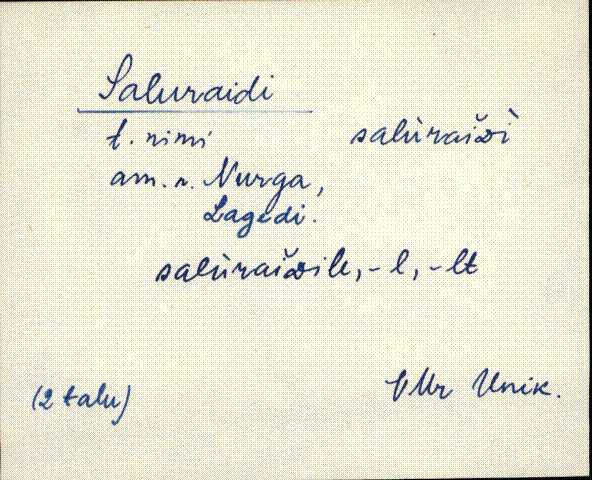 Saluraidi
t. nimi salùraiᴅì
am. n. Nurga,
Lagedi.
salùraiᴅile, -l, -lt
(2 talu) VMr Unik.